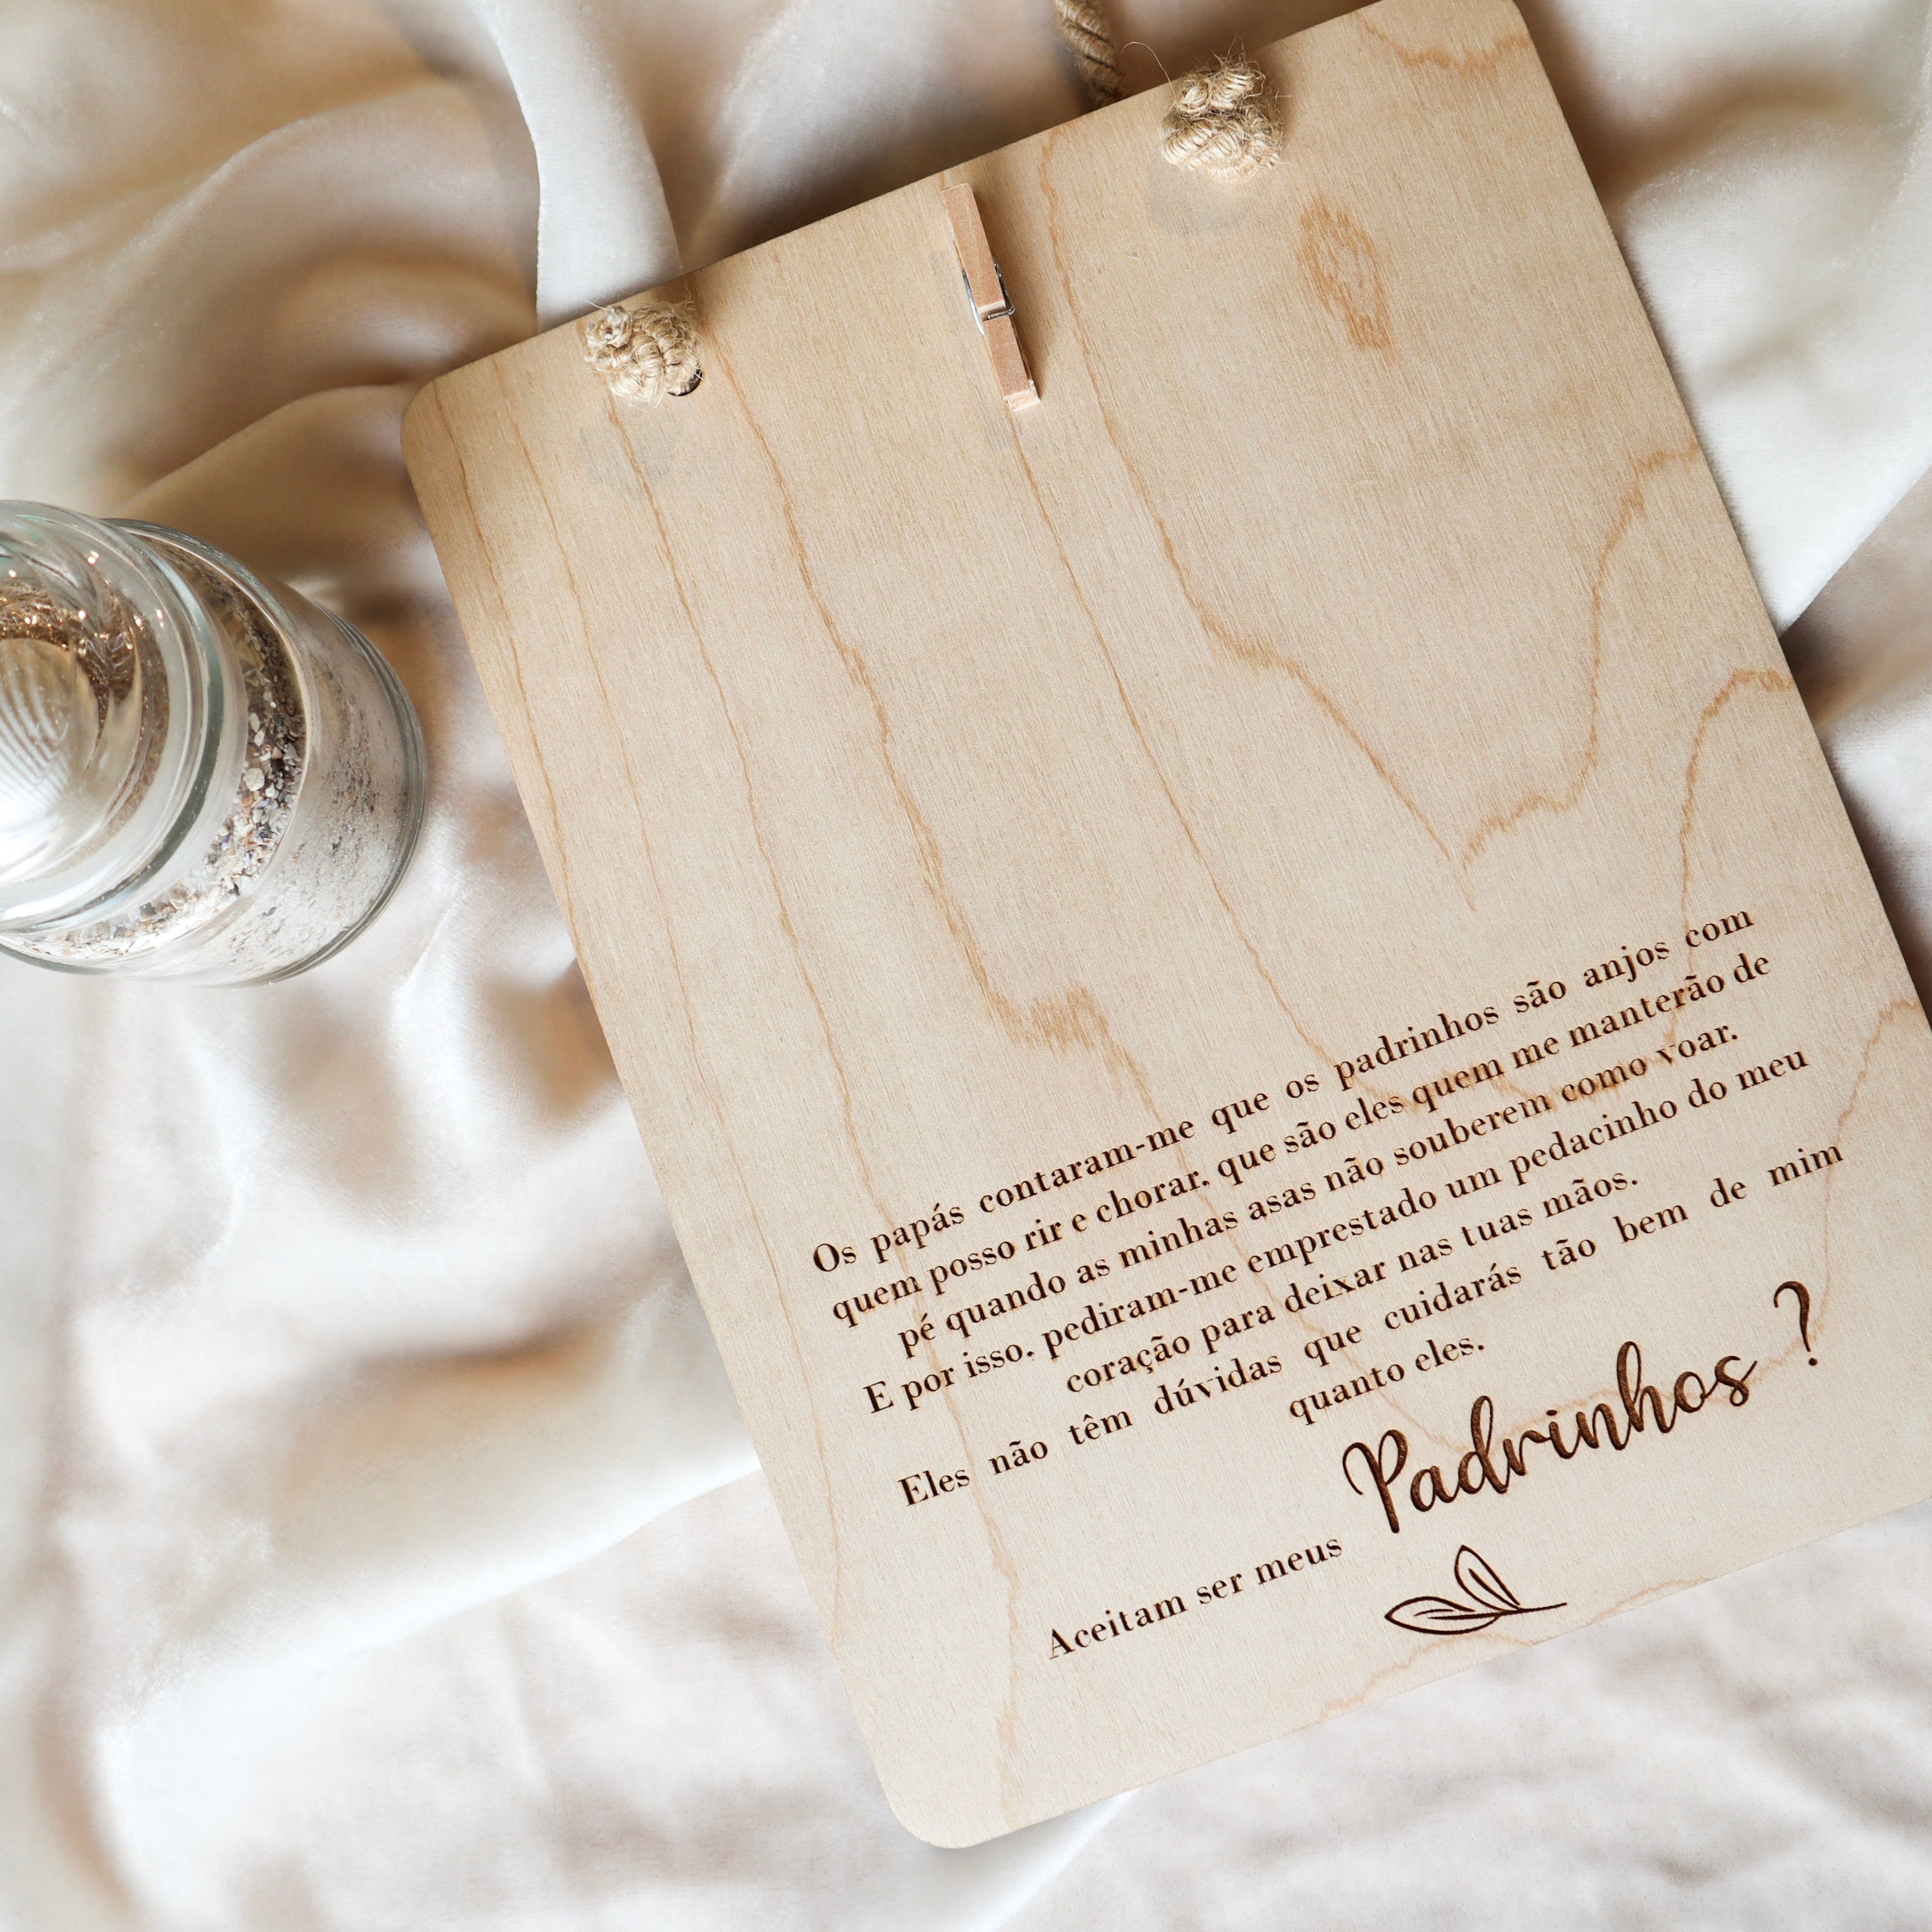 Os papás contaram-me que os padrinhos são anjos com
quem posso rir e chorar, que são eles quem me manterão de
pé quando as minhas asas não souberem como voar.
E por isso, pediram-me emprestado um pedacinho do meu
coração para deixar nas tuas mãos.
Eles não têm dúvidas que cuidarás tão bem de mim
quanto eles.
Aceitam ser meus Padrinhos ?